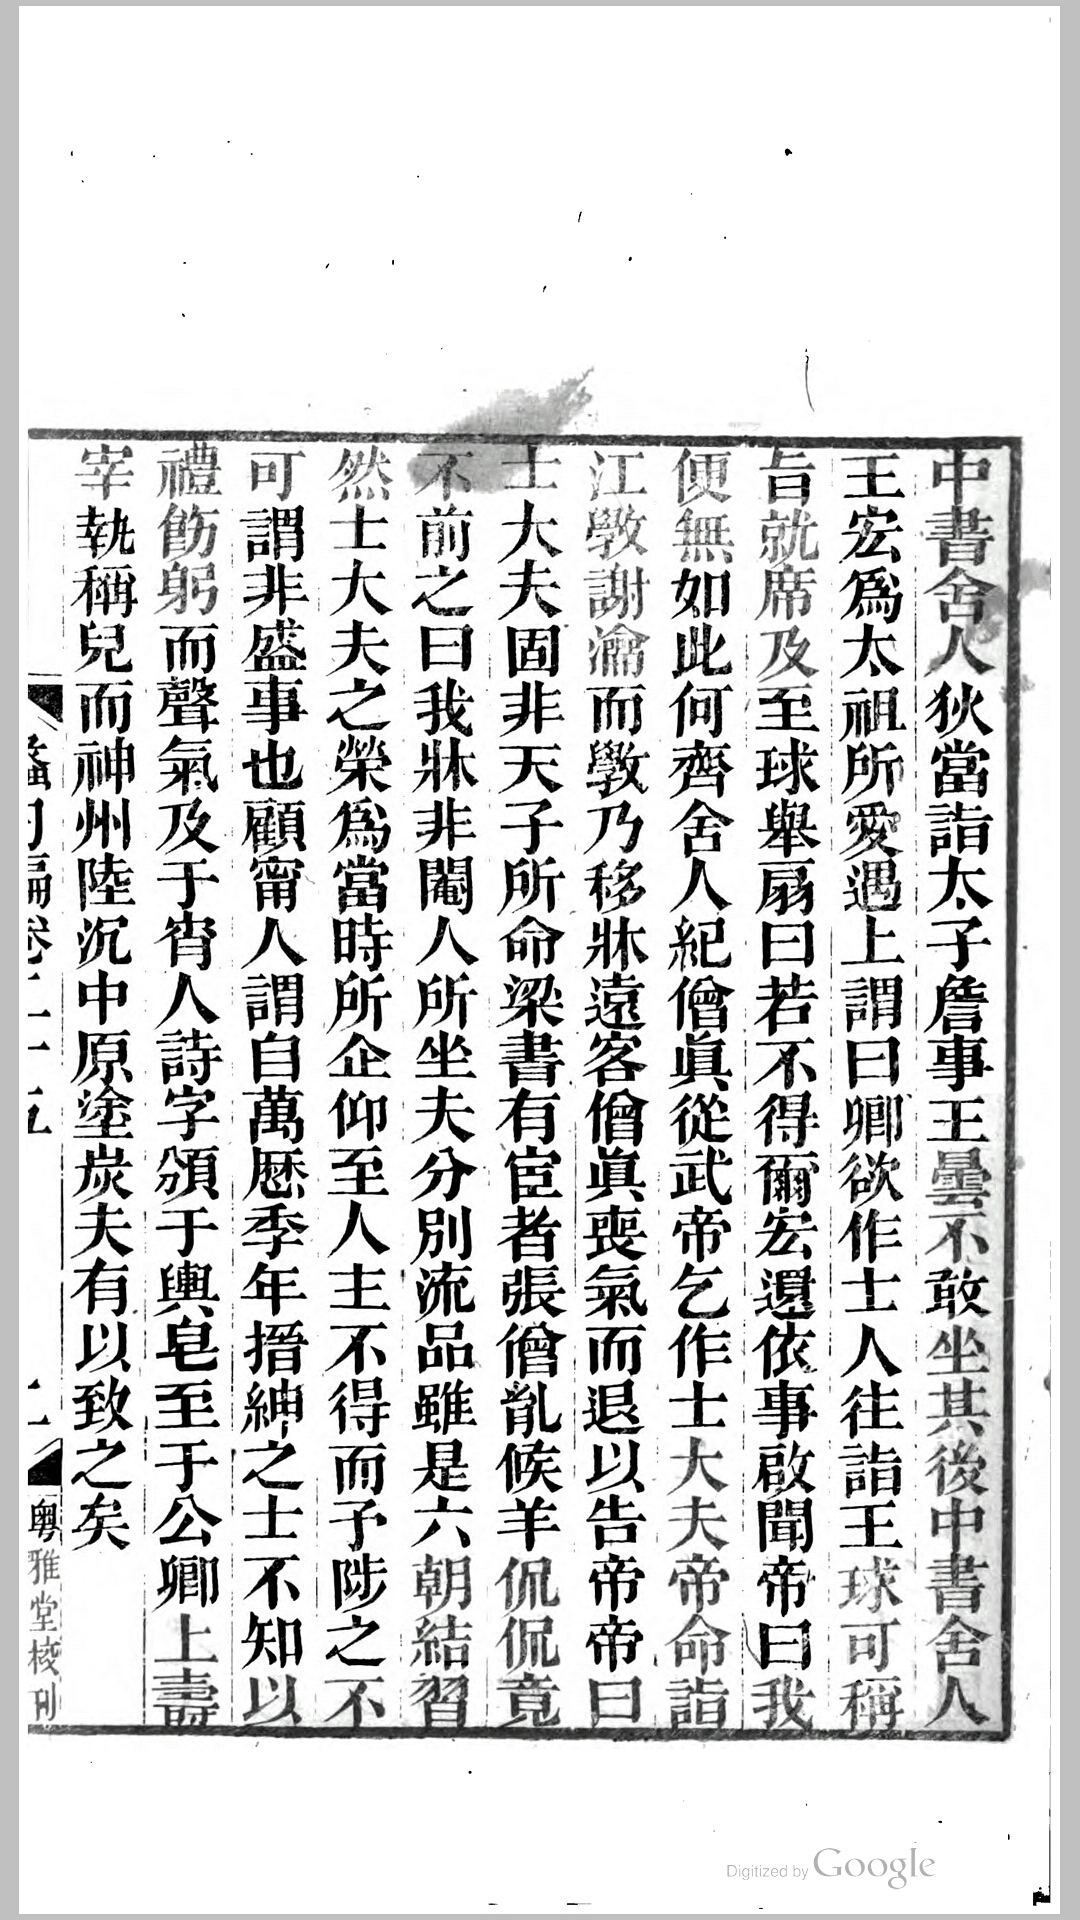 中書舍人狄當詣太子詹事王曇不敢坐其後中書舍人
王宏爲太祖所愛遇上謂曰卿欲作士人往詣王球可稱
旨就席及至球舉扇曰若不得爾宏還依事啟聞帝曰我
便無如此何齊舍人紀僧眞從武帝乞作士大夫帝命詣
江斆謝瀹而斆乃移牀遠客僧眞喪氣而退以告帝帝曰
士大夫固非天子所命梁書有宦者張僧胤候羊侃侃竟
不前之曰我牀非閹人所坐夫分別流品雖是六朝結習
然士大夫之榮爲當時所企仰至人主不得而予陟之不
可謂非盛事也顧甯人謂自萬厯季年搢紳之士不知以
禮飭躬而聲氣及于宵人詩字頒于輿皂至于公卿上壽
宰執稱兒而神州陸沉中原塗炭夫有以致之矣
卷二十五
粵雅堂校刊
Digitized by Google